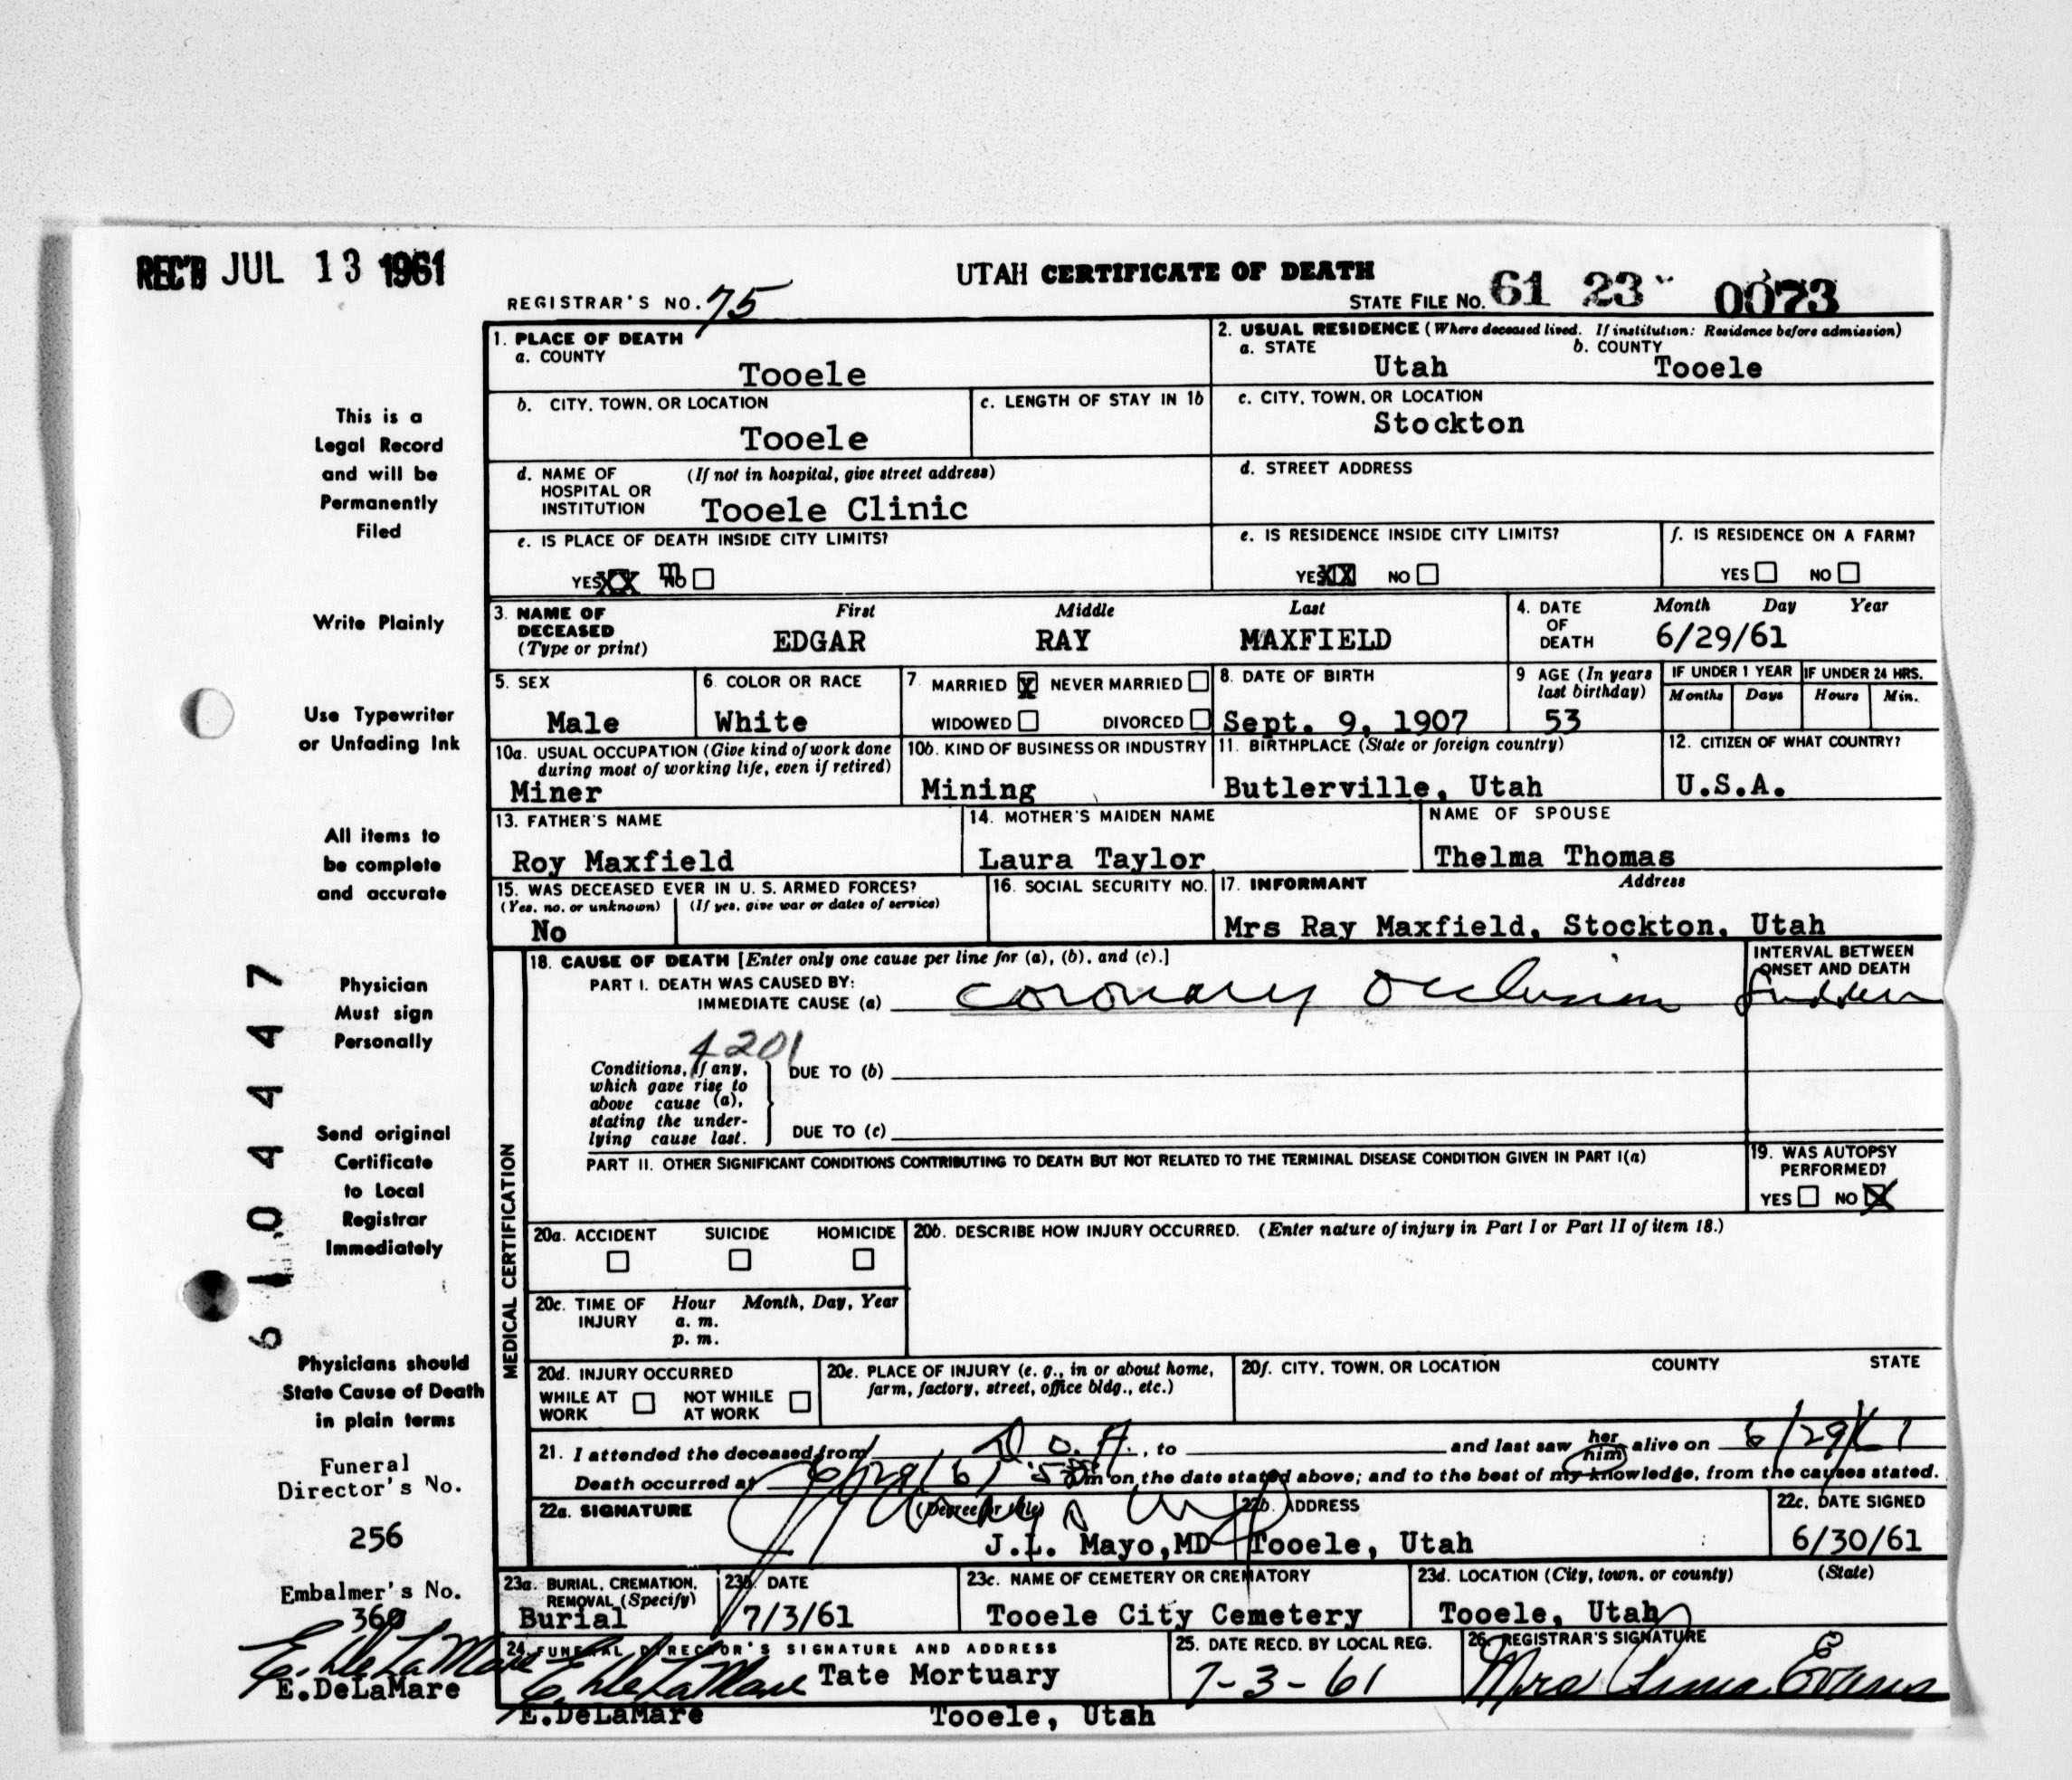 REC'D JUL 13 1961
UTAH CERTIFICATE OF DEATH
REGISTRAR'S NO. 75
STATE FILE NO. 61 23 0073
1. PLACE OF DEATH
a. COUNTY
Tooele
2. USUAL RESIDENCE (Where deceased lived. If institution: Residence before admission)
a. STATE b. COUNTY
Utah Tooele
b. CITY, TOWN, OR LOCATION
Tooele
c. LENGTH OF STAY IN 1b
c. CITY, TOWN, OR LOCATION
Stockton
d. NAME OF (If not in hospital, give street address)
HOSPITAL OR
INSTITUTION Tooele Clinic
d. STREET ADDRESS
e. IS PLACE OF DEATH INSIDE CITY LIMITS?
YES XX NO
e. IS RESIDENCE INSIDE CITY LIMITS?
YES XX NO
f. IS RESIDENCE ON A FARM?
YES NO
3. NAME OF DECEASED (Type or print)
First Middle Last
EDGAR RAY MAXFIELD
4. DATE OF DEATH
Month Day Year
6/29/61
5. SEX
Male
6. COLOR OR RACE
White
7. MARRIED X NEVER MARRIED
WIDOWED DIVORCED
8. DATE OF BIRTH
Sept. 9, 1907
9 AGE (In years last birthday)
53
IF UNDER 1 YEAR IF UNDER 24 HRS.
Months Days Hours Min.
10a. USUAL OCCUPATION (Give kind of work done
during most of working life, even if retired)
Miner
10b. KIND OF BUSINESS OR INDUSTRY
Mining
11. BIRTHPLACE (State or foreign country)
Butlerville, Utah
12. CITIZEN OF WHAT COUNTRY?
U.S.A.
13. FATHER'S NAME
Roy Maxfield
14. MOTHER'S MAIDEN NAME
Laura Taylor
NAME OF SPOUSE
Thelma Thomas
15. WAS DECEASED EVER IN U. S. ARMED FORCES?
(Yes, no, or unknown) (If yes, give war or dates of service)
No
16. SOCIAL SECURITY NO.
17. INFORMANT Address
Mrs Ray Maxfield, Stockton, Utah
MEDICAL CERTIFICATION
18. CAUSE OF DEATH [Enter only one cause per line for (a), (b), and (c).]
PART I. DEATH WAS CAUSED BY:
IMMEDIATE CAUSE (a) Coronary Occlusion
INTERVAL BETWEEN
ONSET AND DEATH
Sudden
4201
Conditions, if any,
which gave rise to
above cause (a),
stating the under-
lying cause last.
DUE TO (b)
DUE TO (c)
PART II. OTHER SIGNIFICANT CONDITIONS CONTRIBUTING TO DEATH BUT NOT RELATED TO THE TERMINAL DISEASE CONDITION GIVEN IN PART I(a)
19. WAS AUTOPSY
PERFORMED?
YES NO X
20a. ACCIDENT SUICIDE HOMICIDE
20b. DESCRIBE HOW INJURY OCCURRED. (Enter nature of injury in Part I or Part II of item 18.)
20c. TIME OF INJURY
Hour Month, Day, Year
a. m.
p. m.
20d. INJURY OCCURRED
WHILE AT WORK NOT WHILE AT WORK
20e. PLACE OF INJURY (e. g., in or about home,
farm, factory, street, office bldg., etc.)
20f. CITY, TOWN, OR LOCATION COUNTY STATE
21. I attended the deceased from D.O.A., to and last saw her him alive on 6/29/61
Death occurred at 6/29/61 m on the date stated above; and to the best of my knowledge, from the causes stated.
22a. SIGNATURE (Degree or title)
J.L. Mayo,MD
22b. ADDRESS
Tooele, Utah
22c. DATE SIGNED
6/30/61
23a. BURIAL, CREMATION,
REMOVAL (Specify)
Burial
23b. DATE
7/3/61
23c. NAME OF CEMETERY OR CREMATORY
Tooele City Cemetery
23d. LOCATION (City, town, or county) (State)
Tooele, Utah
24. FUNERAL DIRECTOR'S SIGNATURE AND ADDRESS
E. DeLaMare Tate Mortuary
E.DeLaMare Tooele, Utah
25. DATE RECD. BY LOCAL REG.
7-3-61
26. REGISTRAR'S SIGNATURE
Mrs Evans
This is a
Legal Record
and will be
Permanently
Filed
Write Plainly
Use Typewriter
or Unfading Ink
All items to
be complete
and accurate
Physician
Must sign
Personally
Send original
Certificate
to Local
Registrar
Immediately
Physicians should
State Cause of Death
in plain terms
Funeral
Director's No.
256
Embalmer's No.
360
E. DeLaMare
E.DeLaMare
61 04447